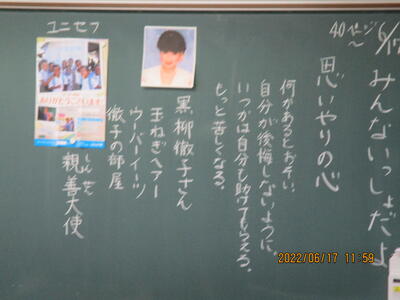 6/17
40ページ～
みんないっしょだよ
思いやりの心
何があるとおそい。
自分が後悔しないように。
いつかは自分も助けてもらえる。
もっと苦しくなる。
黒柳徹子さん
玉ねぎヘアー
ウーバーイーツ
徹子の部屋
しんぜん
親善大使
ユニセフ
ありがとうございます
2022/06/17 11:59